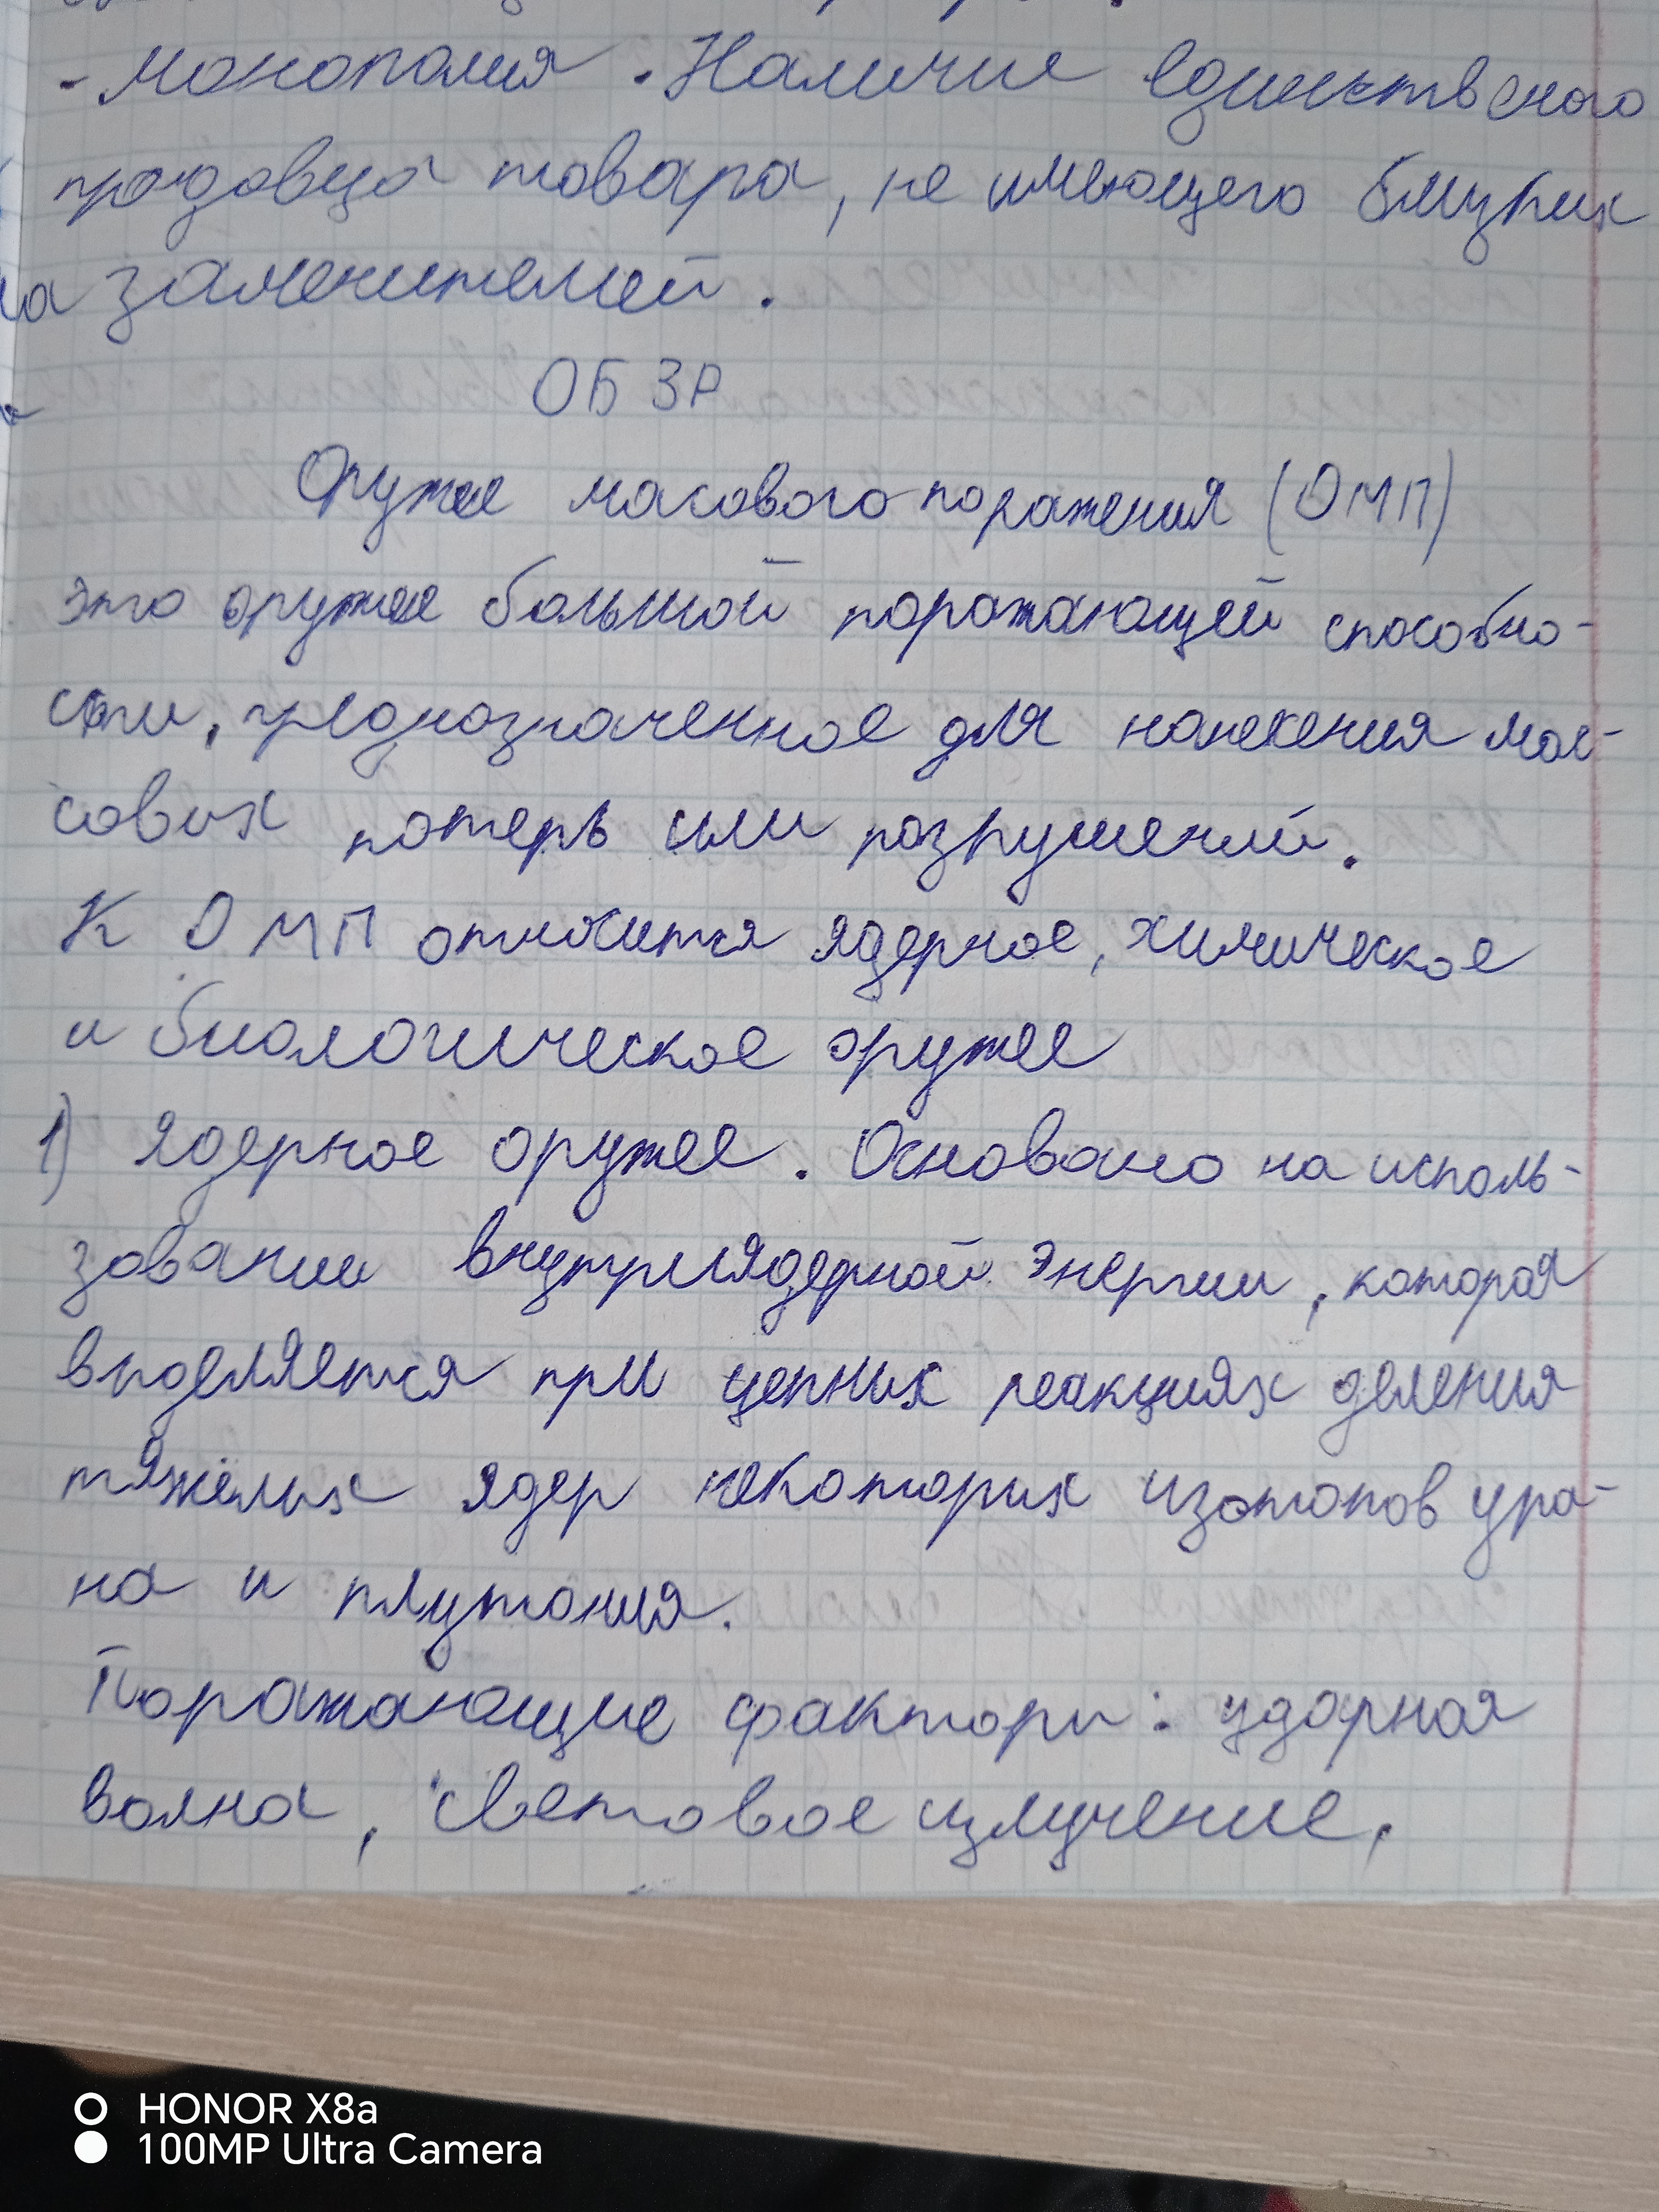 - Монополия. Наличие единственого
продовца товара, не имеющего близких
заменителей.
ОБЗР
Оружее масового поражения (ОМП)
это оружее большой поражающей способно-
сти, предназначенное для нанесения мас-
совых потерь или разрушений.
К ОМП относится ядерное, химическое
и биологическое оружее
1) Ядерное оружее. Основано на исполь-
зовании внутриядерной энергии, которая
выделяется при цепных реакциях деления
тяжёлых ядер некоторых изотопов ура-
на и плутония.
Поражающие факторы: ударная
волна, световое излучение,
HONOR X8a
100MP Ultra Camera